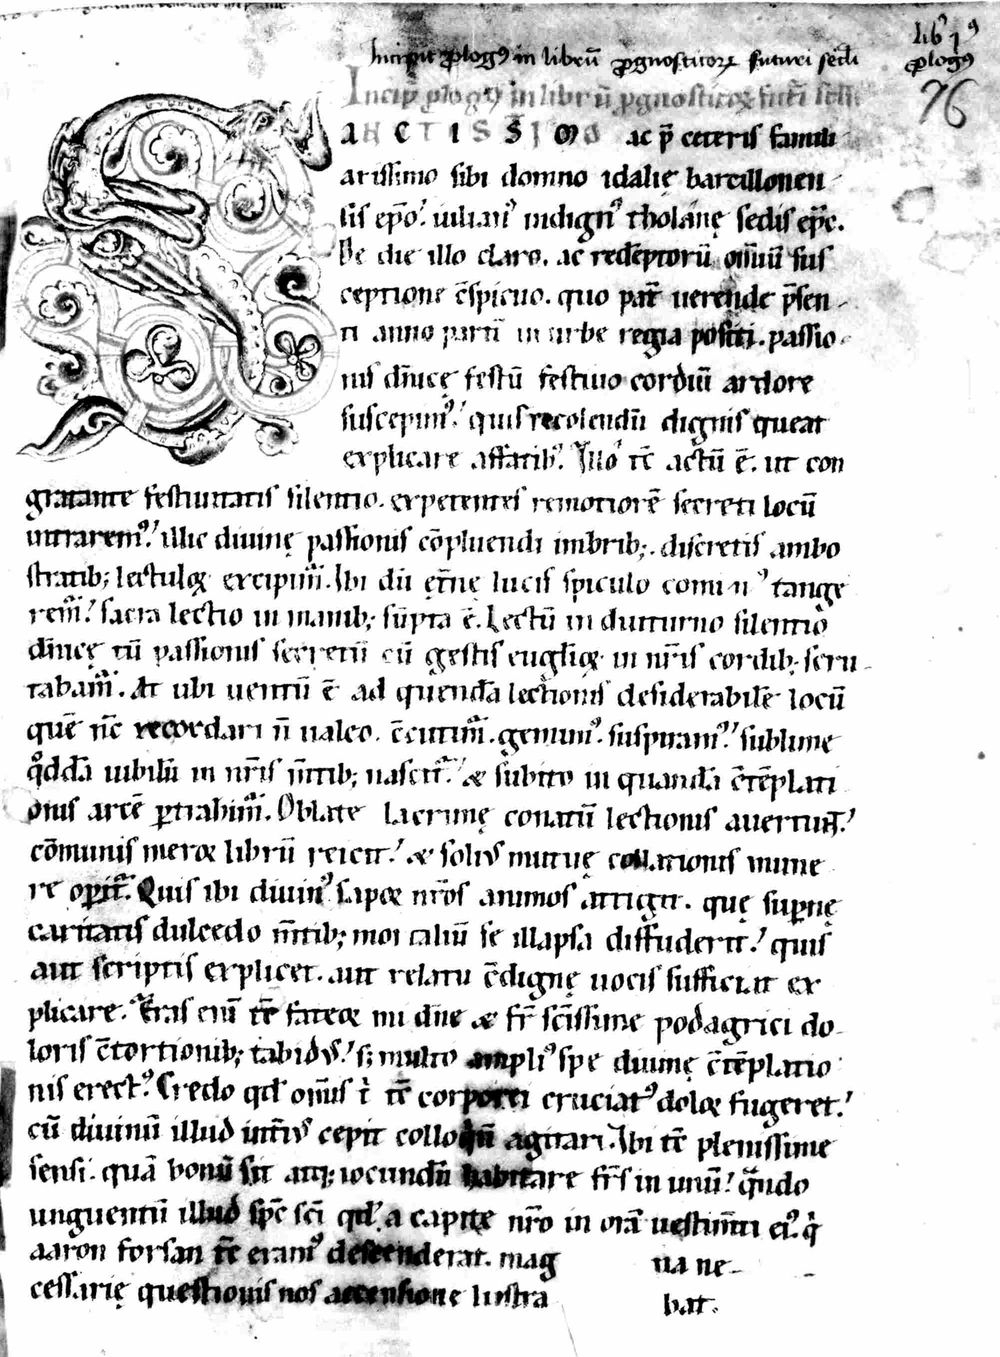 lib̾ iꝰ
ꝓlogꝰ
76
Incipit ꝓlogꝰ in librū ꝓgnosticoꝝ futuri sc̄li
Incip̄ ꝓlogꝰ in librū ꝓgnosticoꝝ futͥ sc̄li
SANCTISSIMO ac p̄ ceteris famili
arissimo sibi domno idalię barcillonen
sis ep̄o. iulianꝰ indignꝰ tholanę sedis ep̄c.
De die illo claro. ac redēptorū om̄iū sus
ceptione c̄spicuo. quo pat̄ uerende p̄sen
ti anno parit̄ in urbe regia positi. passio
nis dn̄icę festū festiuo cordiū ardore
suscepimꝰ. quis recolendū dignis queat
explicare affatibꝰ. Illoꝰ tc̄ actū ē. ut con
gratante festiuitatis silentio. expetentes remotiorē secreti locū
intraremꝰ. illic diuinę passionis cōpluendi imbrib;. discretis ambo
stratib; lectuloꝝ excipimꝰ. Ibi dū et̄nę lucis spiculo tange
remꝰ. sacra lectio in manib; sūpta ē. Lectū in diuturno silentio
dn̄icę tū passionis secretū cū gestis eug̅lioꝝ in nr̄is cordib; scru
tabamꝰ. At ubi uentū ē ad quendā lectionis desiderabilē locū
quē nc̄ recordari n̄ ualeo. c̄cutimꝰ. gemimꝰ. suspiramꝰ. sublime
qͦddā iubilū in nr̄is m̄tib; nascitͬ. ⁊ subito in quandā c̄tēplati
onis arcē ꝑtrahimꝰ. Oblate lacrimę conatū lectionis auertunt̄.
cōmunis meroꝝ librū reicit. ⁊ solius mutuę collationis mune
re opit̄. Quis ibi diuinꝰ sapoꝝ nr̄os animos attigit. quę supnę
caritatis dulcedo m̄tib; moꝛtaliū se illapsa diffuderit. quis
aut scriptis explicet. aut relatu c̄dignę uocis sufficiat ex
plicare. Eras eni̅ tc̄ fateoꝝ mi dn̄e ⁊ fr̄ sc̄issime podagrici do
loris c̄tortionib; tabidus. s; multo ampliꝰ spe diuinę c̄tēplatio
nis erectꝰ. Credo qd̄ om̄is t̄ tc̄ corporei cruciatꝰ doloꝝ fugeret.
cū diuinū illud int̄ nos cepit colloquiū agitari. Ibi tc̄ plenissime
sensi. quā bonū sit atq; iocundū habitare fr̄s in unū. qͣndo
unguentū illud spc̄ sc̄i qd̄ a capite nr̄o in orā uestim̄ti eiꝰ. qͥ
aaron forsan tc̄ eramꝰ descenderat. mag na ne-
cessarię questionis nos accensione lustra bat.